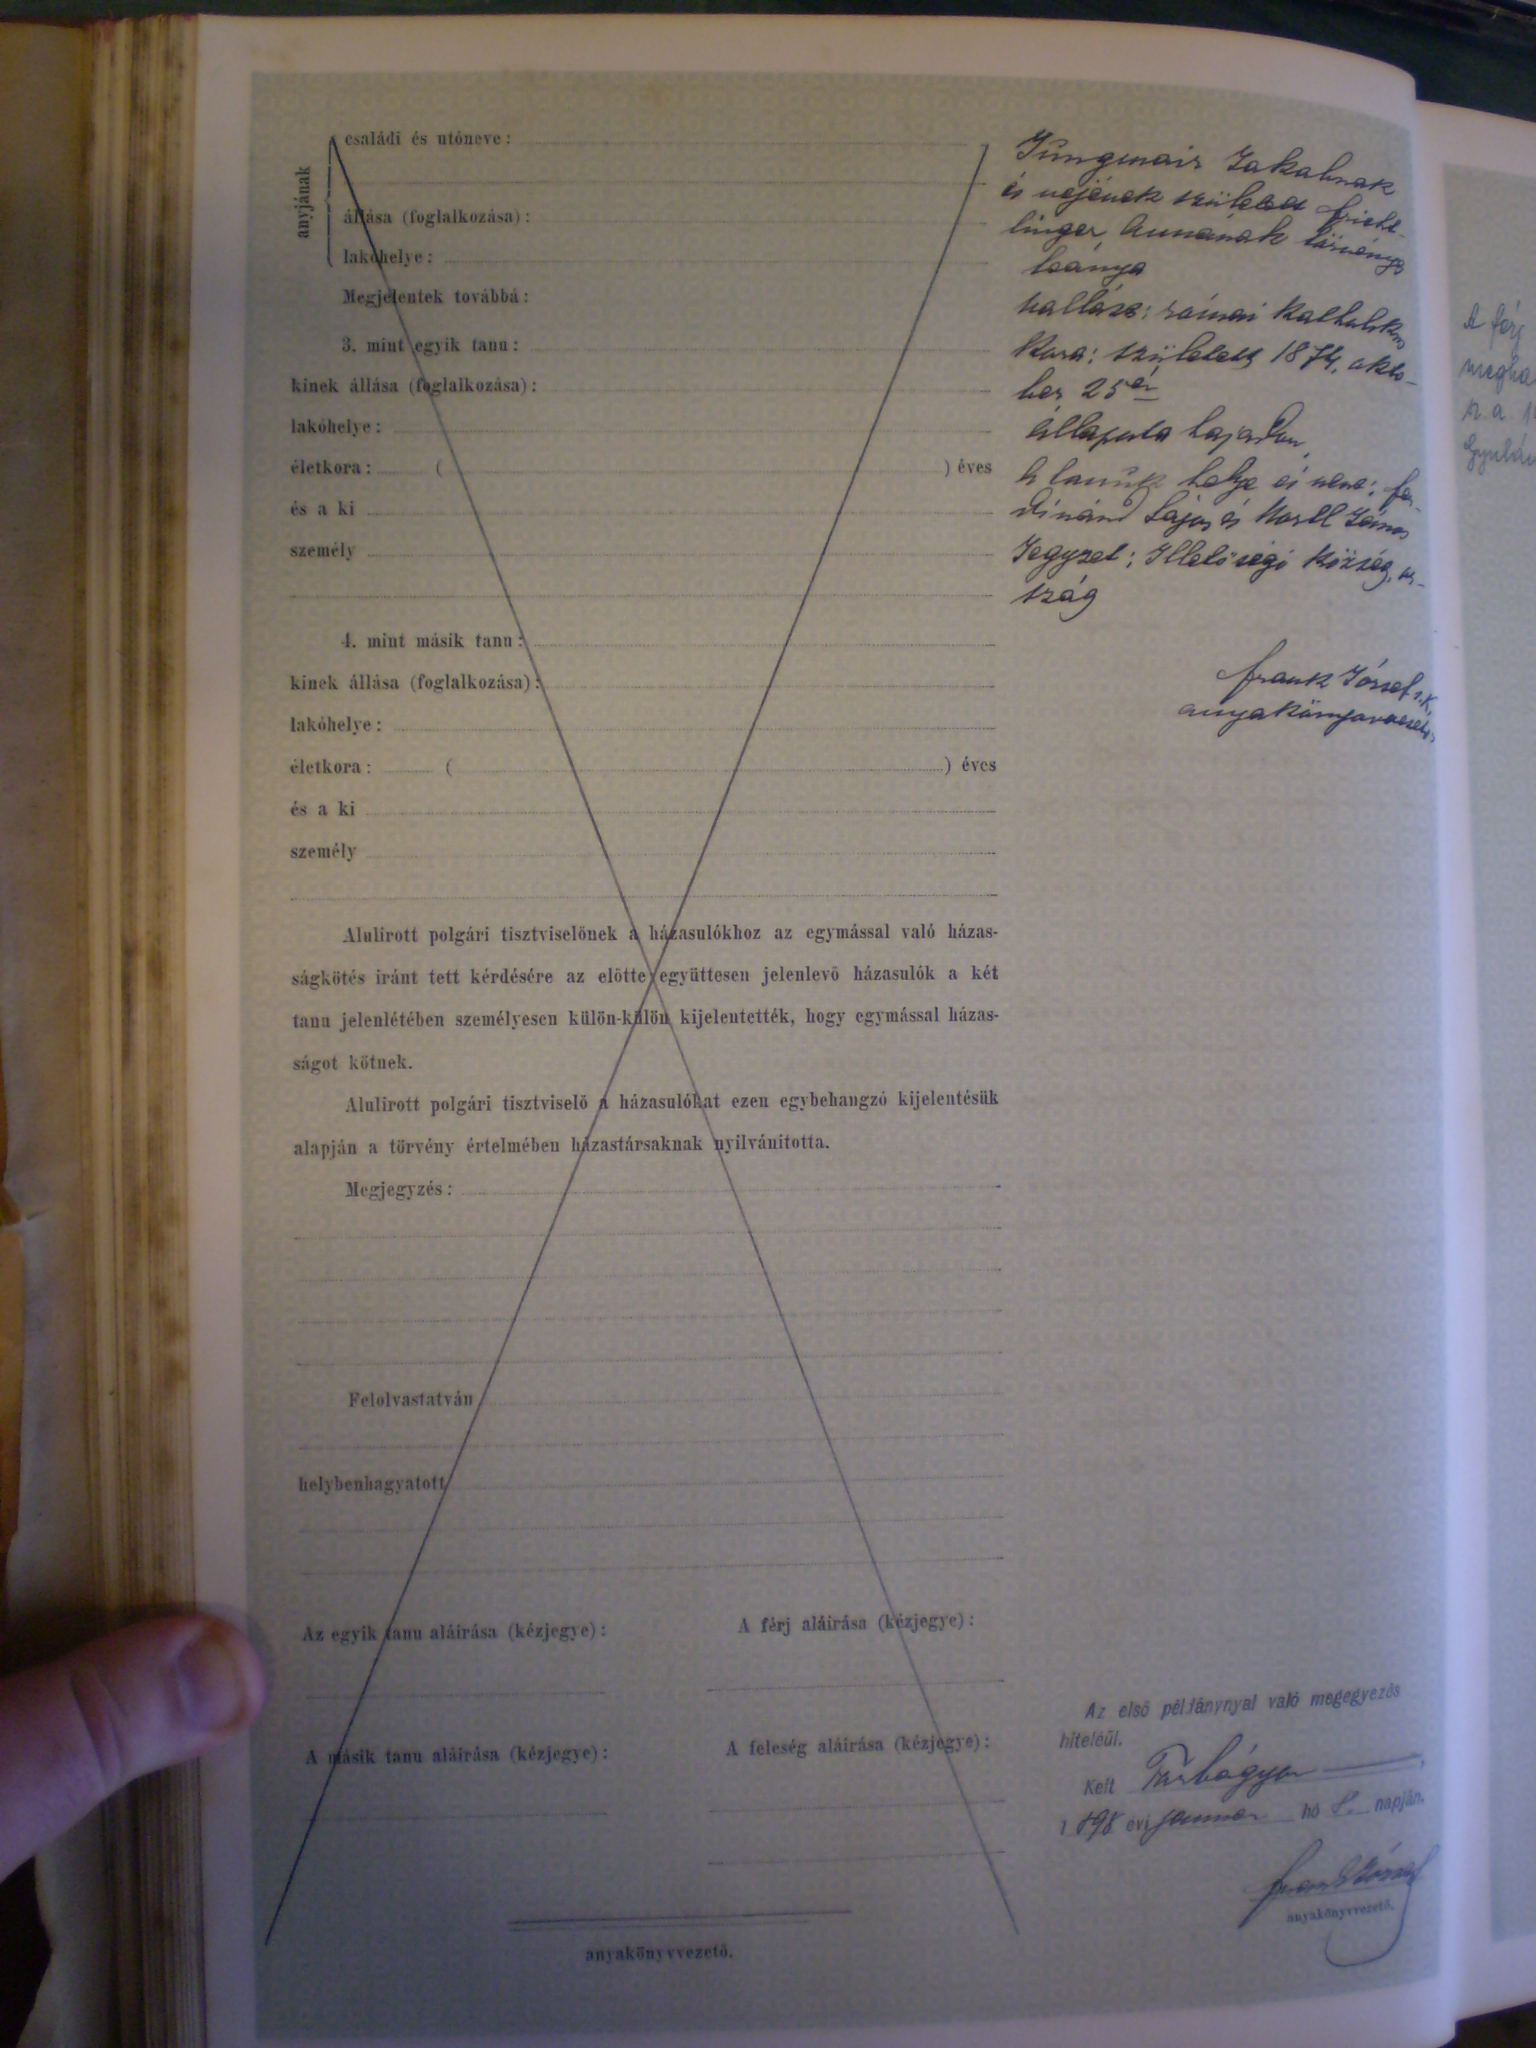 anyjának
családi és utóneve:
állása (foglalkozása):
lakóhelye:
Megjelentek továbbá:
3. mint egyik tanu:
kinek állása (foglalkozása):
lakóhelye:
életkora: ( ) éves
és a ki
személy
4. mint másik tanu:
kinek állása (foglalkozása):
lakóhelye:
életkora: ( ) éves
és a ki
személy
Alulirott polgári tisztviselőnek a házasulókhoz az egymással való házas-
ságkötés iránt tett kérdésére az előtte együttesen jelenlevő házasulók a két
tanu jelenlétében személyesen külön-külön kijelentették, hogy egymással házas-
ságot kötnek.
Alulirott polgári tisztviselő a házasulókat ezen egybehangzó kijelentésük
alapján a törvény értelmében házastársaknak nyilvánitotta.
Megjegyzés:
Felolvastatván
helybenhagyatott
Az egyik tanu aláirása (kézjegye):
A férj aláirása (kézjegye):
A másik tanu aláirása (kézjegye):
A feleség aláirása (kézjegye):
anyakönyvvezető.
Jungmair Jakabnak
és nejének született Fricht-
linger Annának törvényes
leánya
vallása: római katholikus
kora: született 1874. okto-
ber 25én
állapota hajadon
A tanúk és neve: Fer-
dinánd Lajos és János
Jegyzet: Illetőségi község, or-
szág
Frank József s.k.
anyakönyvvezető
Az első példánynyal való megegyezés
hiteléül.
Kelt Torbágyon
1898 évi január hó 8. napján.
Frank József
anyakönyvvezető.
A férj
megha
Gyulán